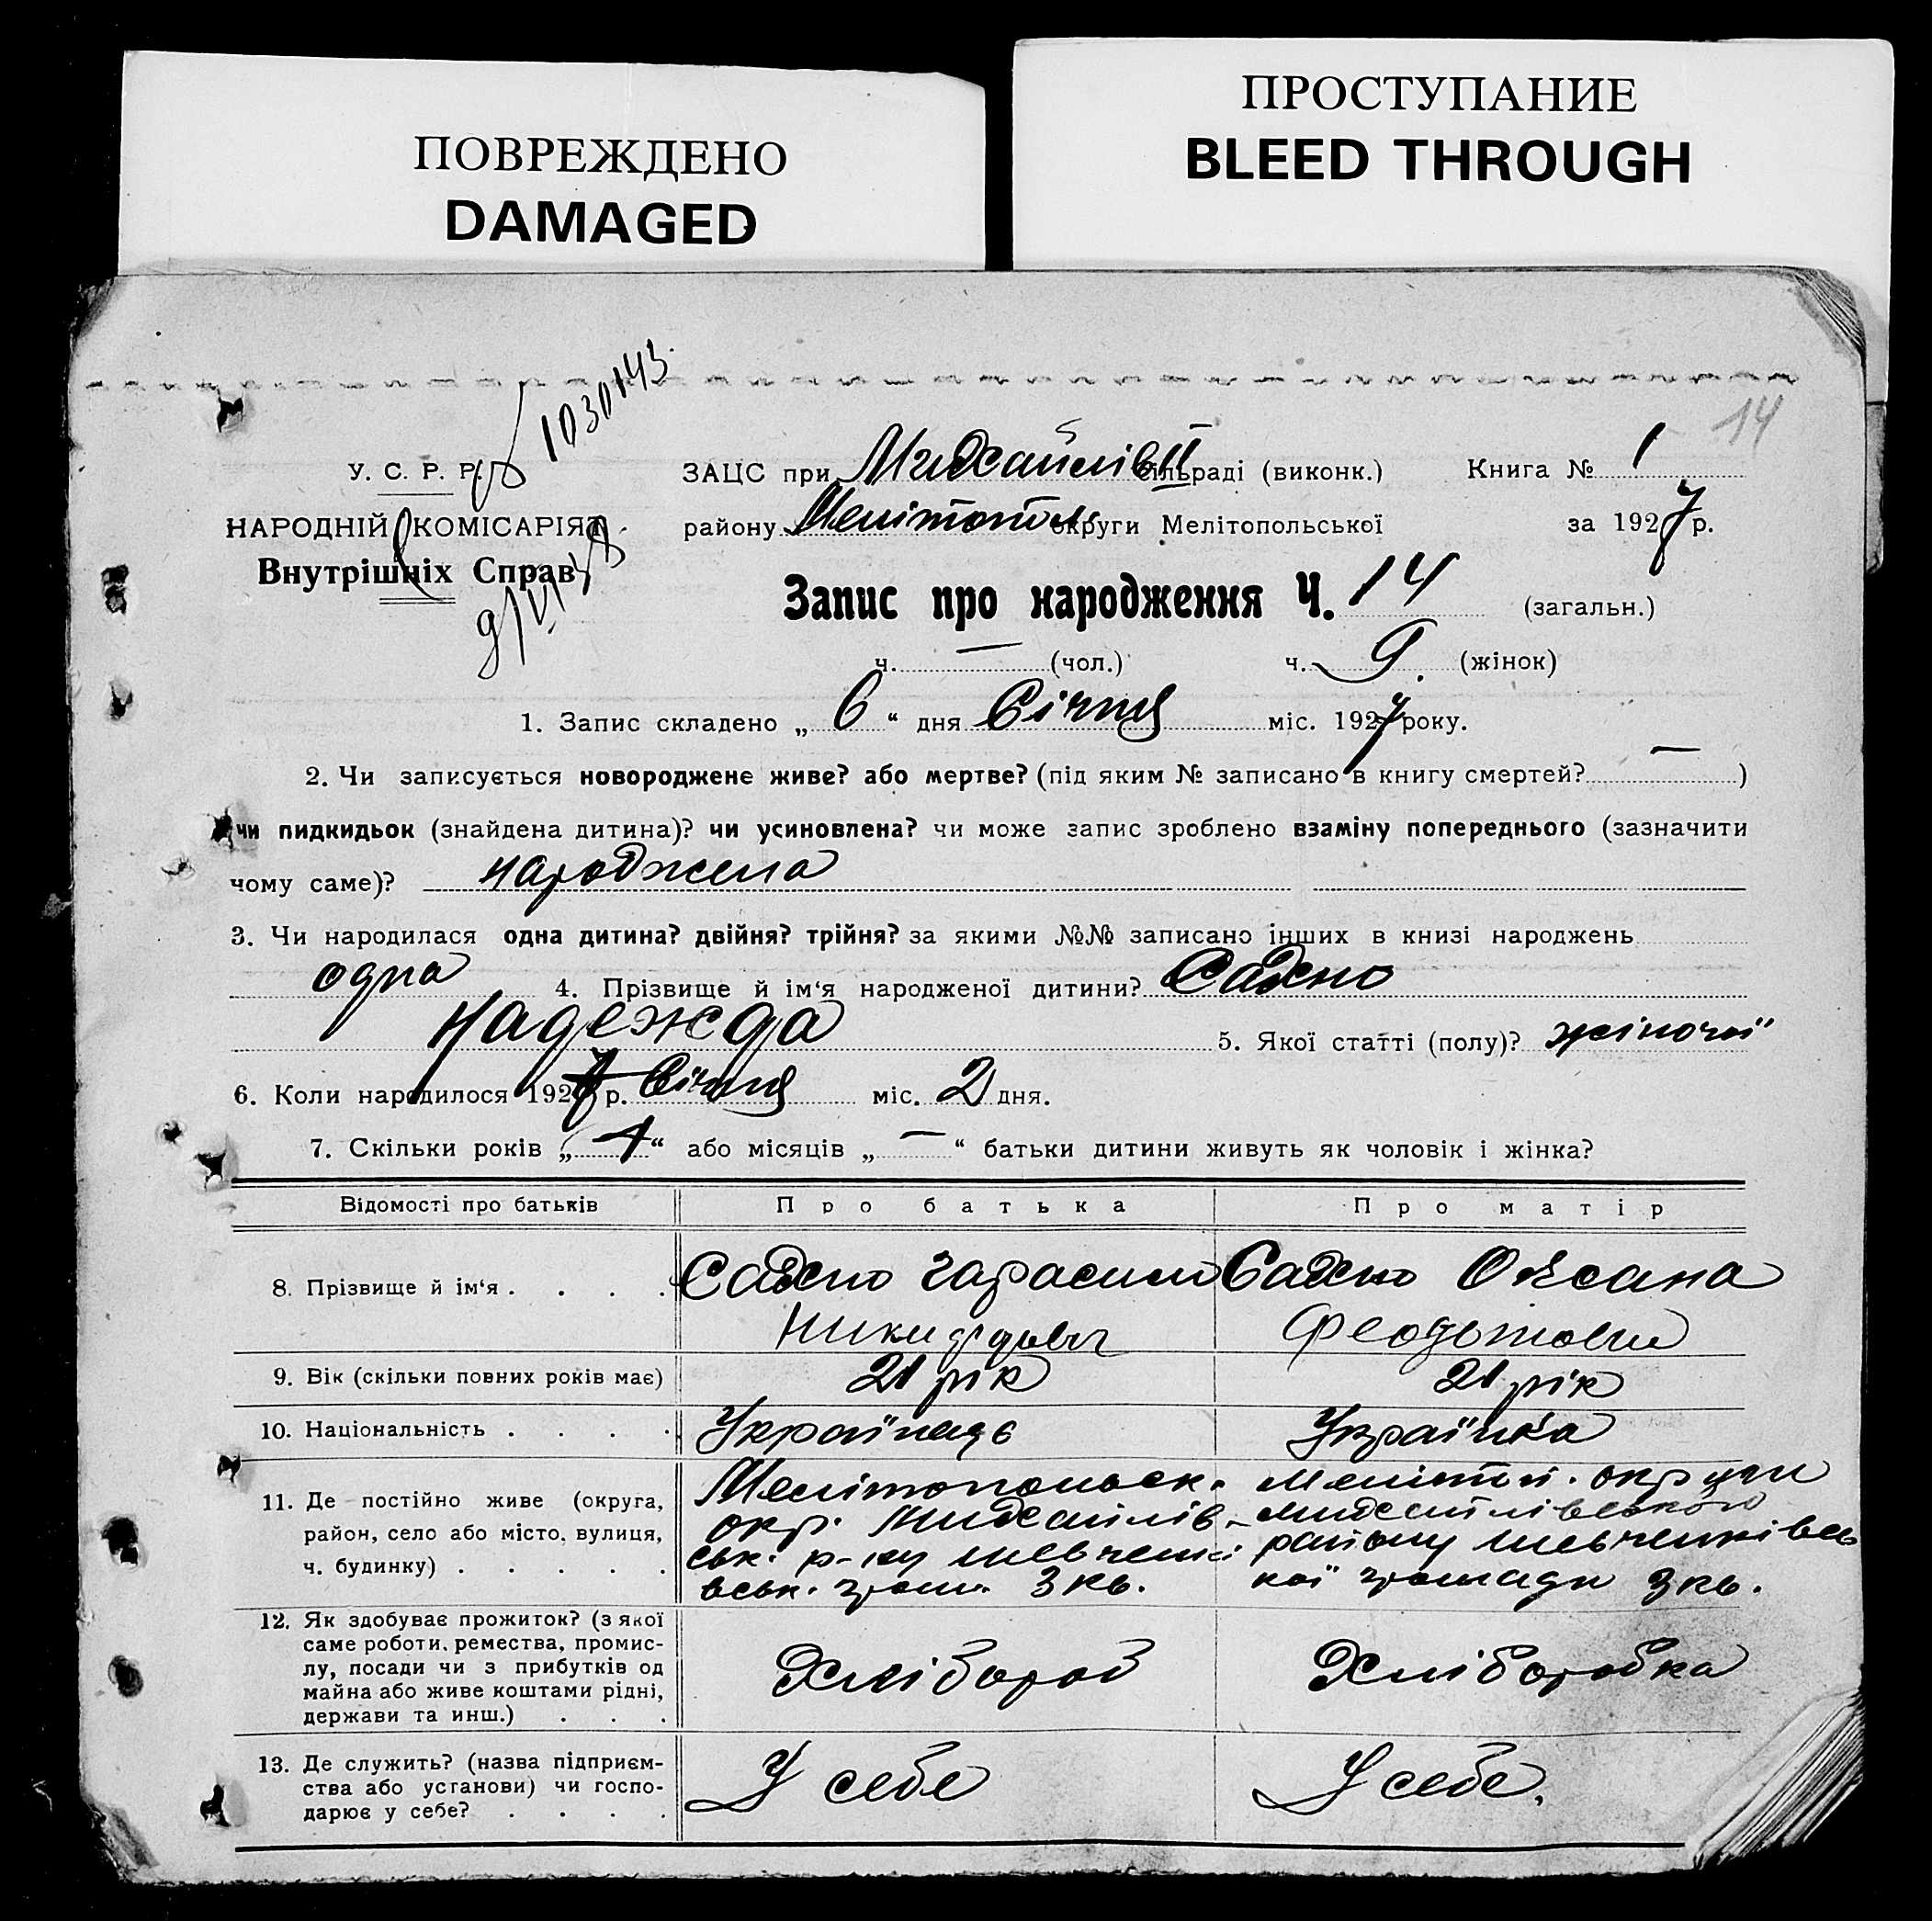 ПОВРЕЖДЕНО
DAMAGED
ПРОСТУПАНИЕ
BLEED THROUGH
1030143
14
У. С. Р. Р.
НАРОДНІЙ КОМІСАРІЯТ
Внутрішніх Справ
ЗАЦС при Михайлів II сільраді (виконк.) Книга № 1
району Мелітопол округи Мелітопольської за 1927 р.
Запис про народження Ч. 14 (загальн.)
ч. — (чол.) ч. 9. (жінок)
1. Запис складено „ 6 “ дня Січня міс. 1927 року.
2. Чи записується новороджене живе? або мертве? (під яким № записано в книгу смертей? — )
чи пидкидьок (знайдена дитина)? чи усиновлена? чи може запис зроблено взаміну попереднього (зазначити
чому саме)? народжена
3. Чи народилася одна дитина? двійня? трійня? за якими №№ записано інших в книзі народжень
одна 4. Прізвище й ім‘я народженої дитини? Сахно
Надежда 5. Якої статті (полу)? жіночої
6. Коли народилося 1927 р. Січня міс. 2 дня.
7. Скільки років „ 1 “ або місяців „ — “ батьки дитини живуть як чоловік і жінка?
Відомості про батьків Про батька Про матір
8. Прізвище й ім‘я . . . . Сахно Гарасим Сахно Оксана
Феодотовна
9. Вік (скільки повних років має) 21 рік 21 рік
10. Національність . . . . Українець Українка
11. Де постійно живе (округа,
район, село або місто, вулиця,
ч. будинку) . . . . .
Мелітопольск.
окр. Михайлів-
ськ. р-ну Шевченкі
вськ. гром. 3 кв.
Мелітоп. округи
Михайлівського
району Шевченківсь
кої громади 3 кв.
12. Як здобуває прожиток? (з якої
саме роботи, ремества, промис-
лу, посади чи з прибутків од
майна або живе коштами рідні,
держави та инш.) . . .
Хлібороб Хліборобка
13. Де служить? (назва підприєм-
ства або установи) чи госпо-
дарює у себе? . . . .
У себе У себе.